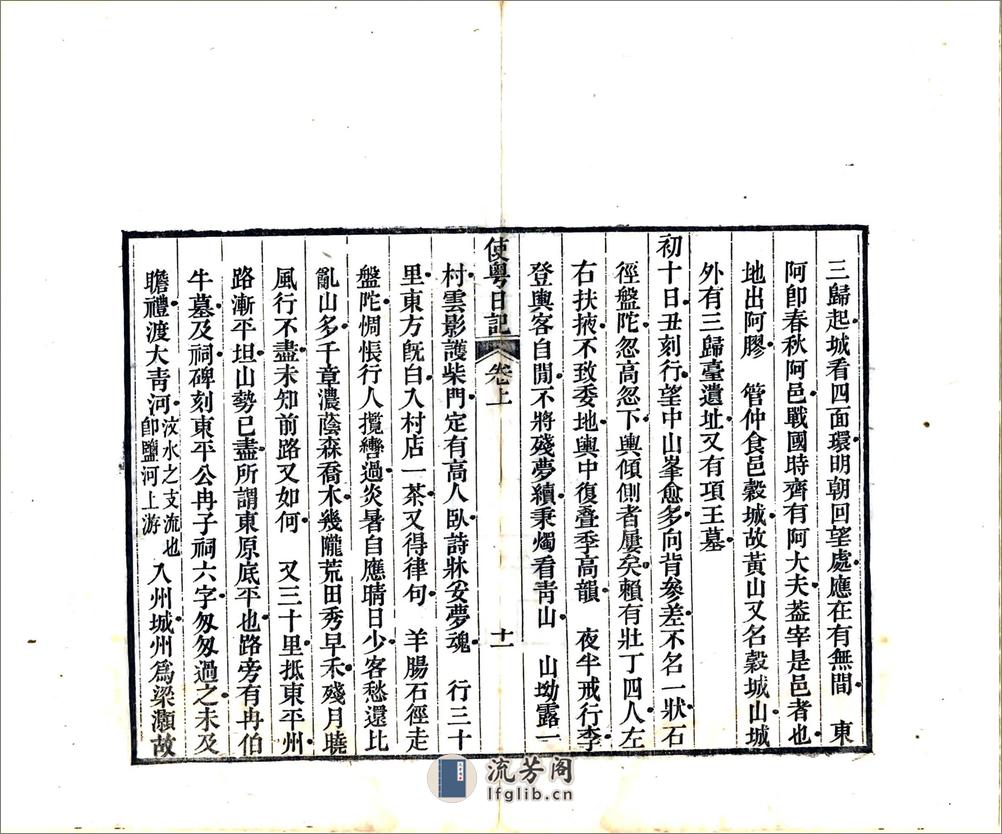 三歸起城看四面環明朝回望處應在有無間　東
阿卽春秋阿邑戰國時齊有阿大夫葢宰是邑者也
地出阿膠　管仲食邑穀城故黃山又名穀城山城
外有三歸臺遺址又有項王墓
初十日丑刻行望中山峯愈多向背參差不名一狀石
徑盤陀忽高忽下輿傾側者屢矣賴有壯丁四人左
右扶掖不致委地輿中復叠季高韻　夜半戒行李
登輿客自閒不將殘夢續秉燭看靑山　山坳露一
使粵日記　卷上　十一
村雲影護柴門定有高人臥詩牀妥夢魂　行三十
里東方旣白入村店一茶又得律句　羊腸石徑走
盤陀惆悵行人攬轡過炎暑自應晴日少客愁還比
亂山多千章濃蔭森喬木幾隴荒田秀早禾殘月曉
風行不盡未知前路又如何　又三十里抵東平州
路漸平坦山勢已盡所謂東原底平也路旁有冉伯
牛墓及祠碑刻東平公冉子祠六字匆匆過之未及
瞻禮渡大青河汶水之支流也卽鹽河上游入州城州爲梁灝故
流芳阁
lfglib.cn